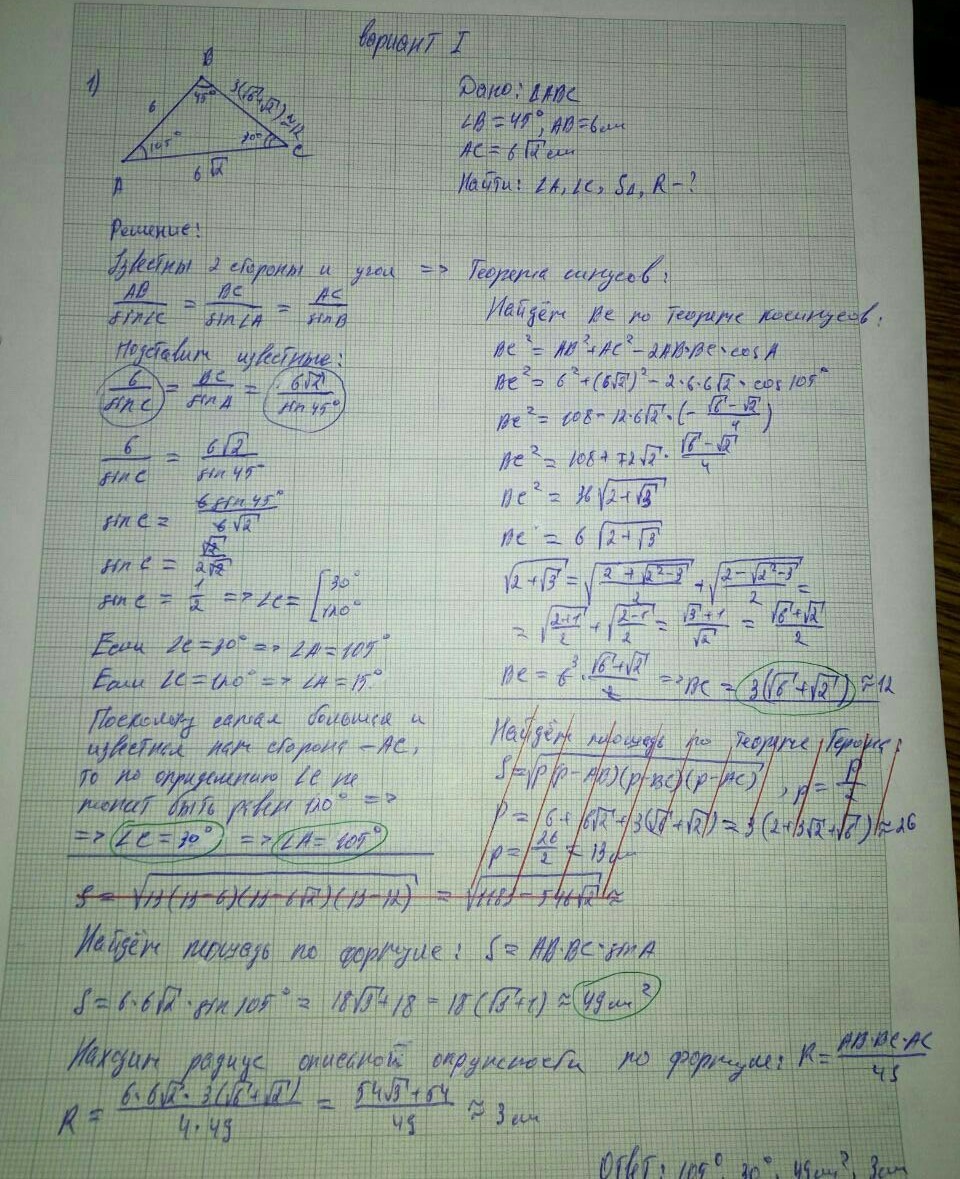 Вариант I
1)
B
45°
6
3(√6+√2)≈12
105°
30°
A
C
6√2
Дано: ΔABC
∠B=45°, AB=6см
AC=6√2 см
Найти: ∠A, ∠C, SΔ, R-?
Решение:
Известны 2 стороны и угол => Теорема синусов:
AB/sin∠C = BC/sin∠A = AC/sinB
Подставим известные:
6/sinC = BC/sinA = 6√2/sin45°
6/sinC = 6√2/sin45
sinC = 6sin45°/6√2
sinC = √2/2√2
sinC = 1/2 => ∠C = [30° 120°
Если ∠C=30° => ∠A=105°
Если ∠C=120° => ∠A=15°
Поскольку самая большая и
известная нам сторона -AC,
то по определению ∠C не
может быть равен 120° =>
=> ∠C=30° => ∠A=105°
Найдём BC по теореме косинусов:
BC² = AB²+AC²-2AB·BC·cosA
BC² = 6²+(6√2)²-2·6·6√2·cos105°
BC² = 108-12·6√2·(-(√6-√2)/4)
BC² = 108+72√2·(√6-√2)/4
BC² = 36√(2+√3)
BC = 6√(2+√3)
√(2+√3) = √((2+√(2²-3))/2) + √((2-√(2²-3))/2) =
= √((2+1)/2) + √((2-1)/2) = (√3+1)/√2 = (√6+√2)/2
BC = 6³·(√6+√2)/2 => BC = 3(√6+√2) ≈12
Найдём площадь по теореме Герона:
S=√(p(p-AB)(p-BC)(p-AC)), p=P/2
P = 6+6√2+3(√6+√2) = 3(2+3√2+√6) ≈26
p = 26/2 = 13см
S = √(13(13-6)(13-6√2)(13-12)) = √(1183-546√2) ≈
Найдём площадь по формуле: S = AB·BC·sinA
S = 6·6√2·sin105° = 18√3+18 = 18(√3+1) ≈ 49см²
Находим радиус описаной окружности по формуле: R = AB·BC·AC/4S
R = 6·6√2·3(√6+√2)/4·49 = 54√3+54/49 ≈ 3см
Ответ: 105°, 30°, 49см², 3см